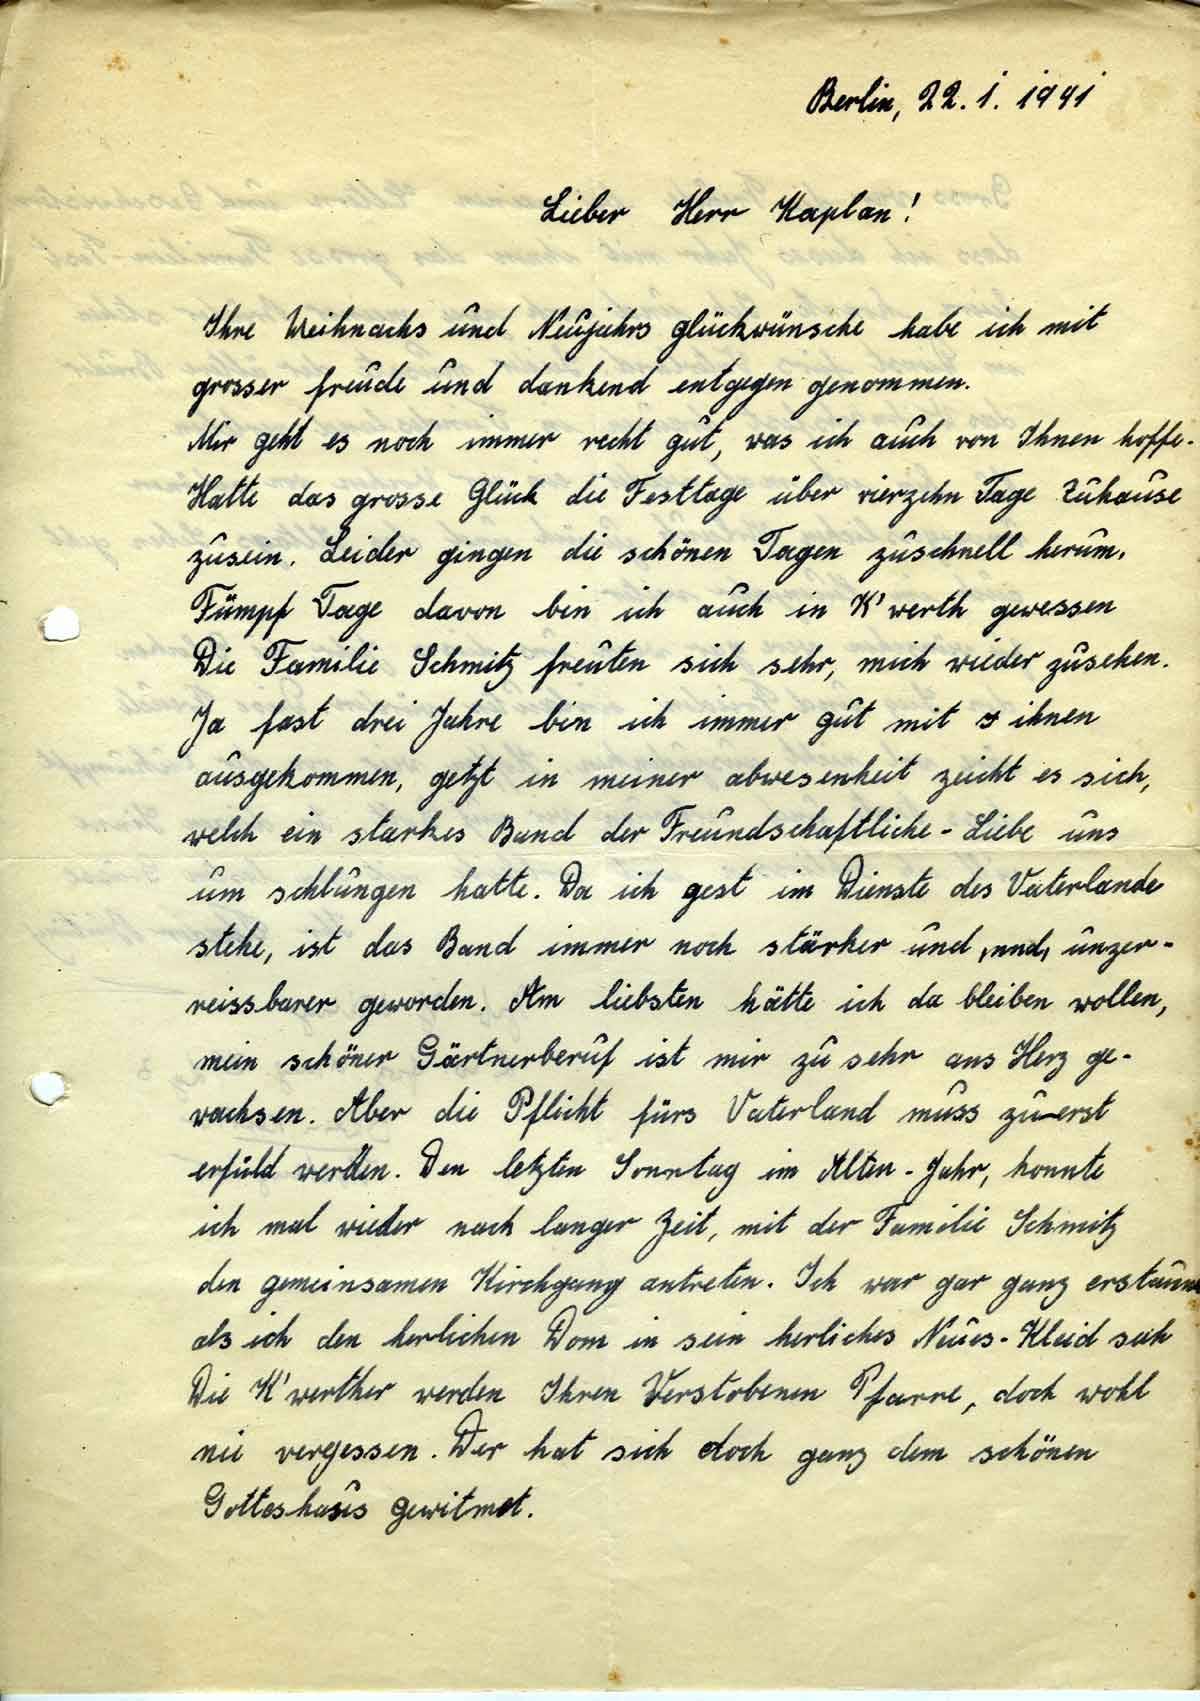 Berlin, 22. 1. 1941
Lieber Herr Kaplan!
Ihre Weihnachs und Neujahrs glückwünsche habe ich mit
grosser freude und dankend entgegen genommen.
Mir geht es noch immer recht gut, was ich auch von Ihnen hoffe.
Hatte das grosse Glück die Festtage über vierzehn Tage Zuhause
zusein. Leider gingen die schönen Tagen zuschnell herum.
Fümpf Tage davon bin ich auch in K'werth gewessen
Die Familie Schmitz freuten sich sehr, mich wieder zusehen.
Ja fast drei Jahre bin ich immer gut mit ihnen
ausgekommen, getzt in meiner abwesenheit zeicht es sich,
welch ein starkes Band der Freundschaftliche - Liebe uns
um schlungen hatte. Da ich gest im Dienste des Vaterlande
stehe, ist das Band immer noch stärker und, und, unzer-
reissbarer geworden. Am liebsten hätte ich da bleiben wollen,
mein schöner Gärtnerberuf ist mir zu sehr ans Herz ge-
wachsen. Aber die Pflicht fürs Vaterland muss zuerst
erfüld werden. Den letzten Sonntag im Alten - Jahr, konnte
ich mal wieder nach langer Zeit, mit der Familie Schmitz
den gemeinsamen Kirchgang antreten. Ich war gar ganz erstaunt
als ich den herlichen Dom in sein herliches Neues - Kleid sah
Die K'werther werden Ihren Verstobenen Pfarre, doch wohl
nie vergessen. Der hat sich doch ganz dem schönen
Gotteshaus gewitmet.